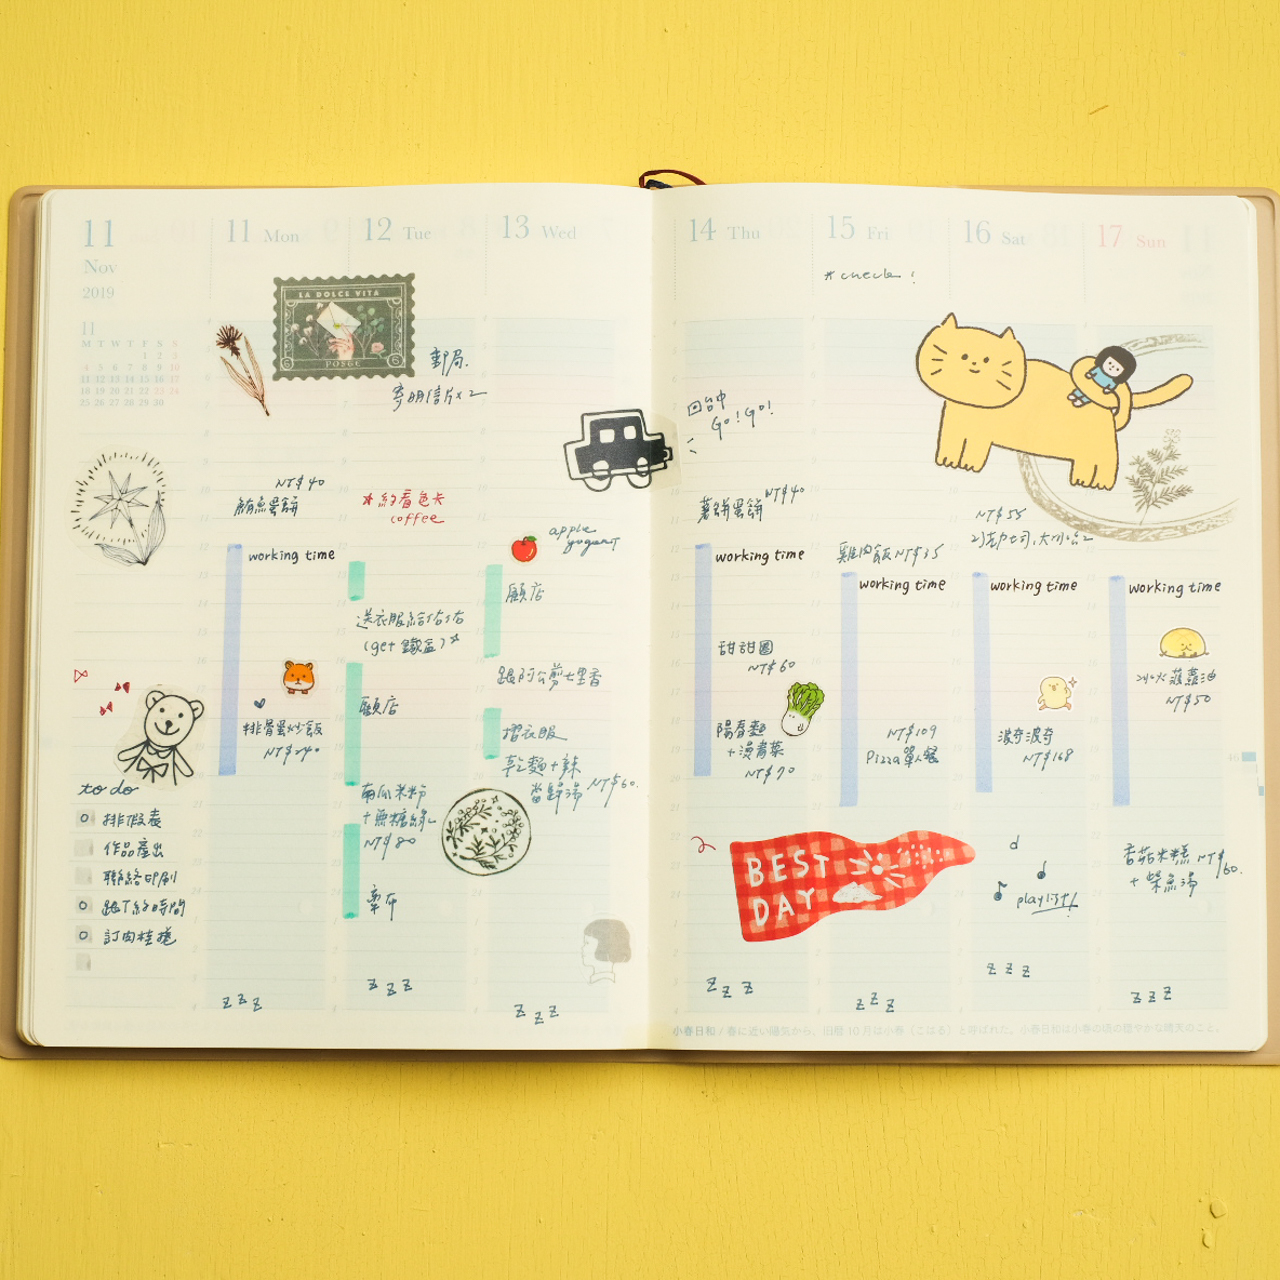 11
Nov
2019
11
M T W T F S S
1 2 3
4 5 6 7 8 9 10
11 12 13 14 15 16 17
18 19 20 21 22 23 24
25 26 27 28 29 30
to do
排假表
作品產出
聯絡印刷
跟T約時間
11 Mon
NT$40
鮪魚蛋餅
working time
排骨蛋炒飯
z z z
12 Tue
LA DOLCE VITA
POSGE
郵局.
寄明信片x2
★約看色卡
coffee
送衣服給佑佑
(get 鐵盒)
顧店
南瓜米粉
NT$80
牽布
z z z
13 Wed
apple
yogurt
顧店
跟阿公剪七里香
摺衣服
乾麵+辣
當歸湯 NT$60.
z z z
14 Thu
回台中
Go! Go!
薯餅蛋餅 NT$40
working time
甜甜圈
NT$60
陽春麵
+燙青菜
NT$70
BEST
DAY
z z z
15 Fri
*check!
雞肉飯 NT$35
working time
NT$109
Pizza 單人餐
z z z
16 Sat
NT$55
working time
波奇波奇
NT$168
playlist!
z z z
17 Sun
working time
冰火菠蘿油
NT$50
香菇米糕 NT$60.
+柴魚湯
z z z
小春日和 / 春に近い陽気から、旧暦10月は小春（こはる）と呼ばれた。小春日和は小春の頃の穏やかな晴天のこと。